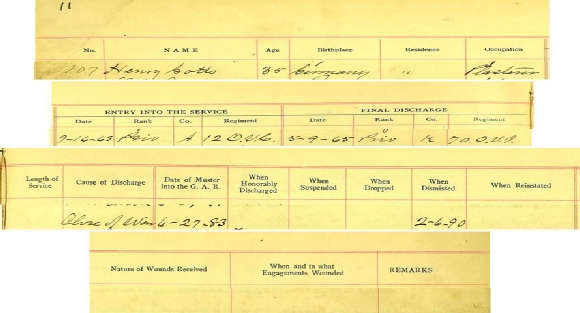 11
No. NAME Age Birthplace Residence Occupation
207 Henry Gotts 35 Germany " Plasterer
ENTRY INTO THE SERVICE FINAL DISCHARGE
Date Rank Co. Regiment Date Rank Co. Regiment
Priv A 12 5-9-65 Priv K 70 O.V.I.
Length of Service Cause of Discharge Date of Muster into the G. A. R. When Honorably Discharged When Suspended When Dropped When Dismissed When Reinstated
Close of War 6-27-83 2-6-90
Nature of Wounds Received When and in what Engagements Wounded REMARKS